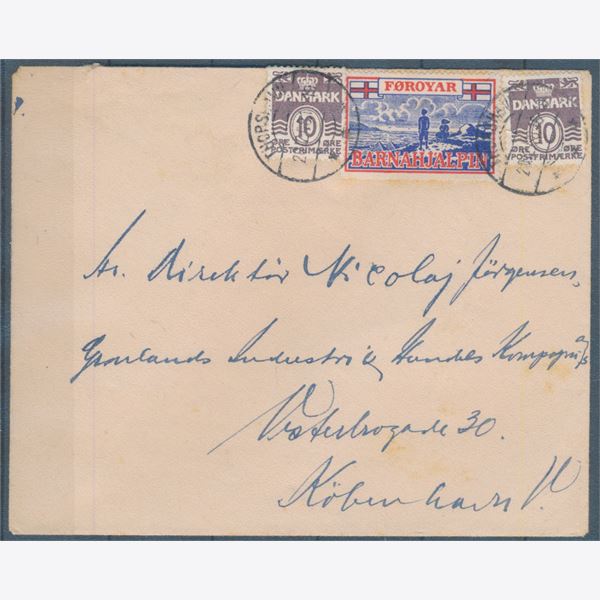 DANMARK
10
ØRE ØRE
POSTFRIMÆRKE
FØROYAR
BARNAHJALPIN
DANMARK
10
ØRE ØRE
POSTFRIMÆRKE
Hr. Direktör Nicolaj Jörgensen,
Grønlands Industri & Handels Kompagni a/s
Vesterbrogade 30.
København V.